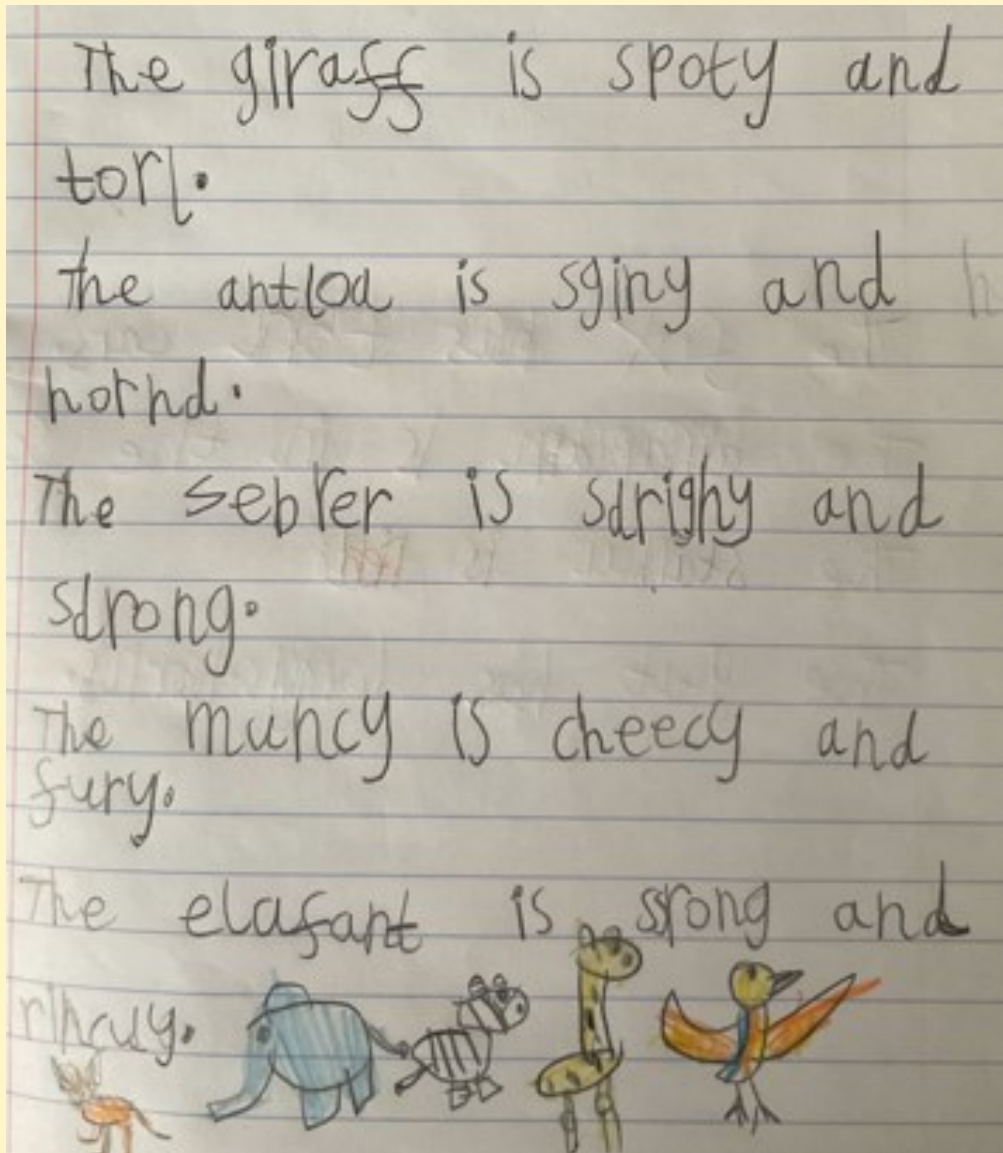 The giraff is spoty and
torl.
The antloa is sginy and
hornd.
The sebrer is sdrighy and
sdrong.
The muncy is cheecy and
fury.
The elafant is srong and